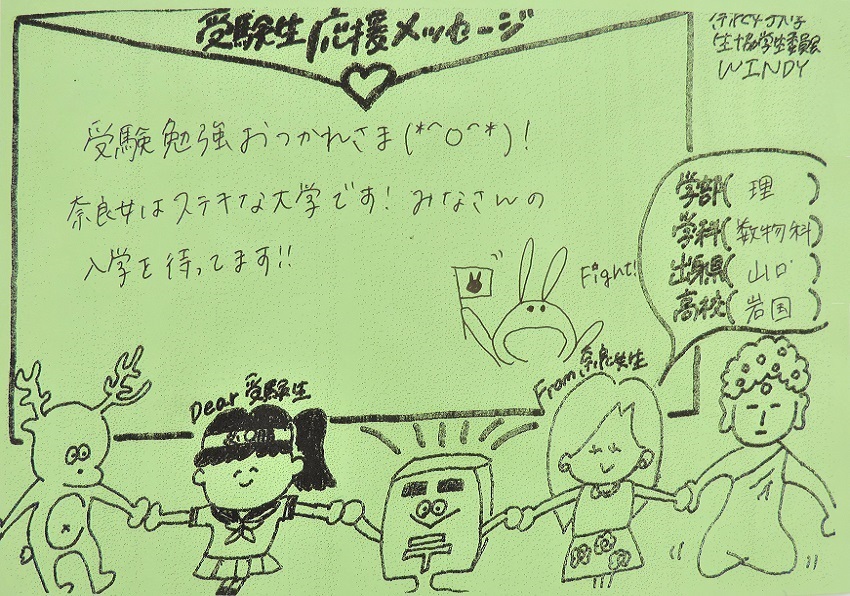 受験生応援メッセージ
生協学生委員会
WINDY
受験勉強おつかれさま(*^o^*)!
奈良女はステキな大学です! みなさんの
入学を待ってます!!
Fight!
学部(理)
学科(数物科)
出身県(山口)
高校(岩国)
Dear 受験生
From 奈良女生